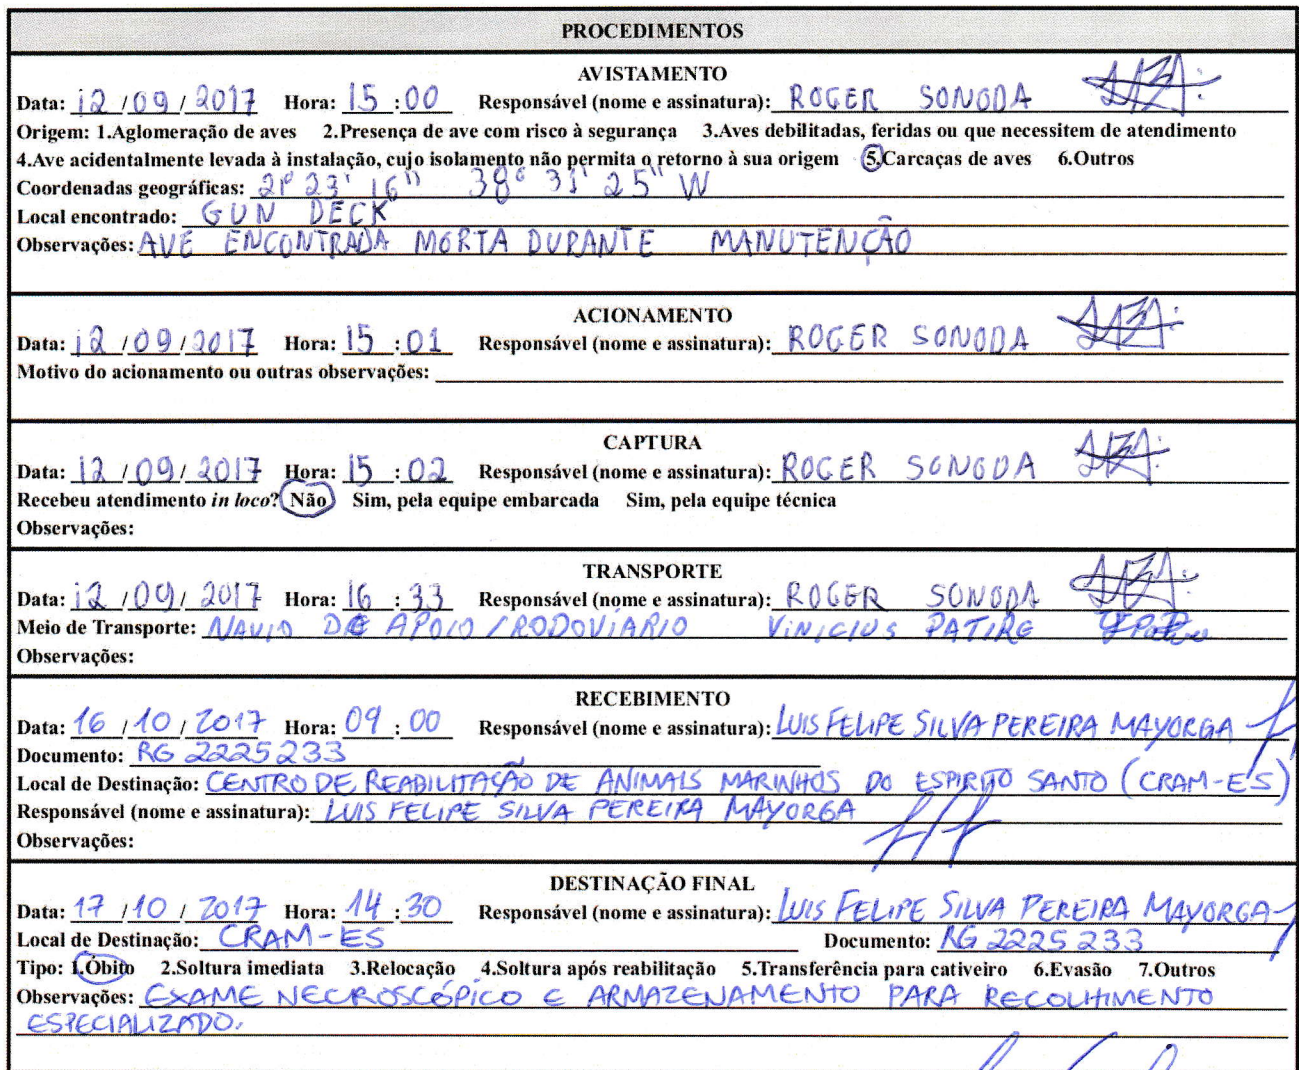 PROCEDIMENTOS
AVISTAMENTO
Data: 12 / 09 / 2017 Hora: 15 : 00 Responsável (nome e assinatura): ROGER SONODA
Origem: 1.Aglomeração de aves 2.Presença de ave com risco à segurança 3.Aves debilitadas, feridas ou que necessitem de atendimento
4.Ave acidentalmente levada à instalação, cujo isolamento não permita o retorno à sua origem 5.Carcaças de aves 6.Outros
Coordenadas geográficas: 21° 23' 16" 38° 31' 25" W
Local encontrado: GUN DECK
Observações: AVE ENCONTRADA MORTA DURANTE MANUTENÇÃO
ACIONAMENTO
Data: 12 / 09 / 2017 Hora: 15 : 01 Responsável (nome e assinatura): ROGER SONODA
Motivo do acionamento ou outras observações:
CAPTURA
Data: 12 / 09 / 2017 Hora: 15 : 02 Responsável (nome e assinatura): ROGER SONODA
Recebeu atendimento in loco? Não Sim, pela equipe embarcada Sim, pela equipe técnica
Observações:
TRANSPORTE
Data: 12 / 09 / 2017 Hora: 16 : 33 Responsável (nome e assinatura): ROGER SONODA
Meio de Transporte: NAVIO DE APOIO / RODOVIÁRIO VINICIUS PATIRE
Observações:
RECEBIMENTO
Data: 16 / 10 / 2017 Hora: 09 : 00 Responsável (nome e assinatura): LUIS FELIPE SILVA PEREIRA MAYORGA
Documento: RG 2225233
Local de Destinação: CENTRO DE REABILITAÇÃO DE ANIMAIS MARINHOS DO ESPIRITO SANTO (CRAM-ES)
Responsável (nome e assinatura): LUIS FELIPE SILVA PEREIRA MAYORGA
Observações:
DESTINAÇÃO FINAL
Data: 17 / 10 / 2017 Hora: 14 : 30 Responsável (nome e assinatura): LUIS FELIPE SILVA PEREIRA MAYORGA
Local de Destinação: CRAM-ES Documento: RG 2225 233
Tipo: 1.Óbito 2.Soltura imediata 3.Relocação 4.Soltura após reabilitação 5.Transferência para cativeiro 6.Evasão 7.Outros
Observações: EXAME NECROSCÓPICO E ARMAZENAMENTO PARA RECOLHIMENTO
ESPECIALIZADO.